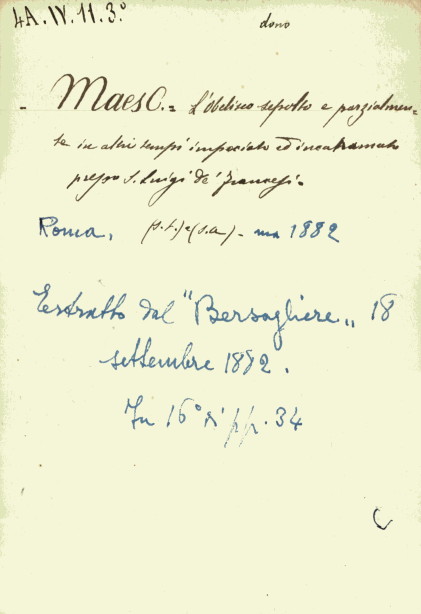 4A.IV.11.3.°
dono
- Maes C. = L'obelisco sepolto e parzialmen-
te in altri tempi impeciato ed incatramato
presso S. Luigi de' Francesi. -
Roma, (s.t.) e (s.a) - ma 1882
Estratto dal "Bersagliere„ 18
settembre 1882.
In 16° di pp. 34
C